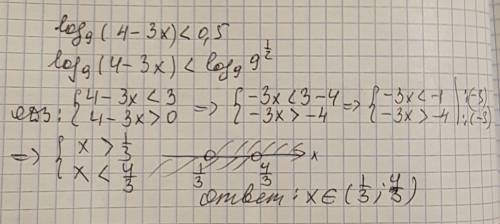 log₉(4-3x)<0,5
log₉(4-3x)<log₉ 9^½
ОДЗ: { 4-3x<3 => { -3x<3-4 => { -3x<-1 | :(-3)
{ 4-3x>0 { -3x>-4 { -3x>-4 | :(-3)
=> { x>1/3
{ x<4/3
1/3 4/3 x
Ответ: x∈(1/3; 4/3)